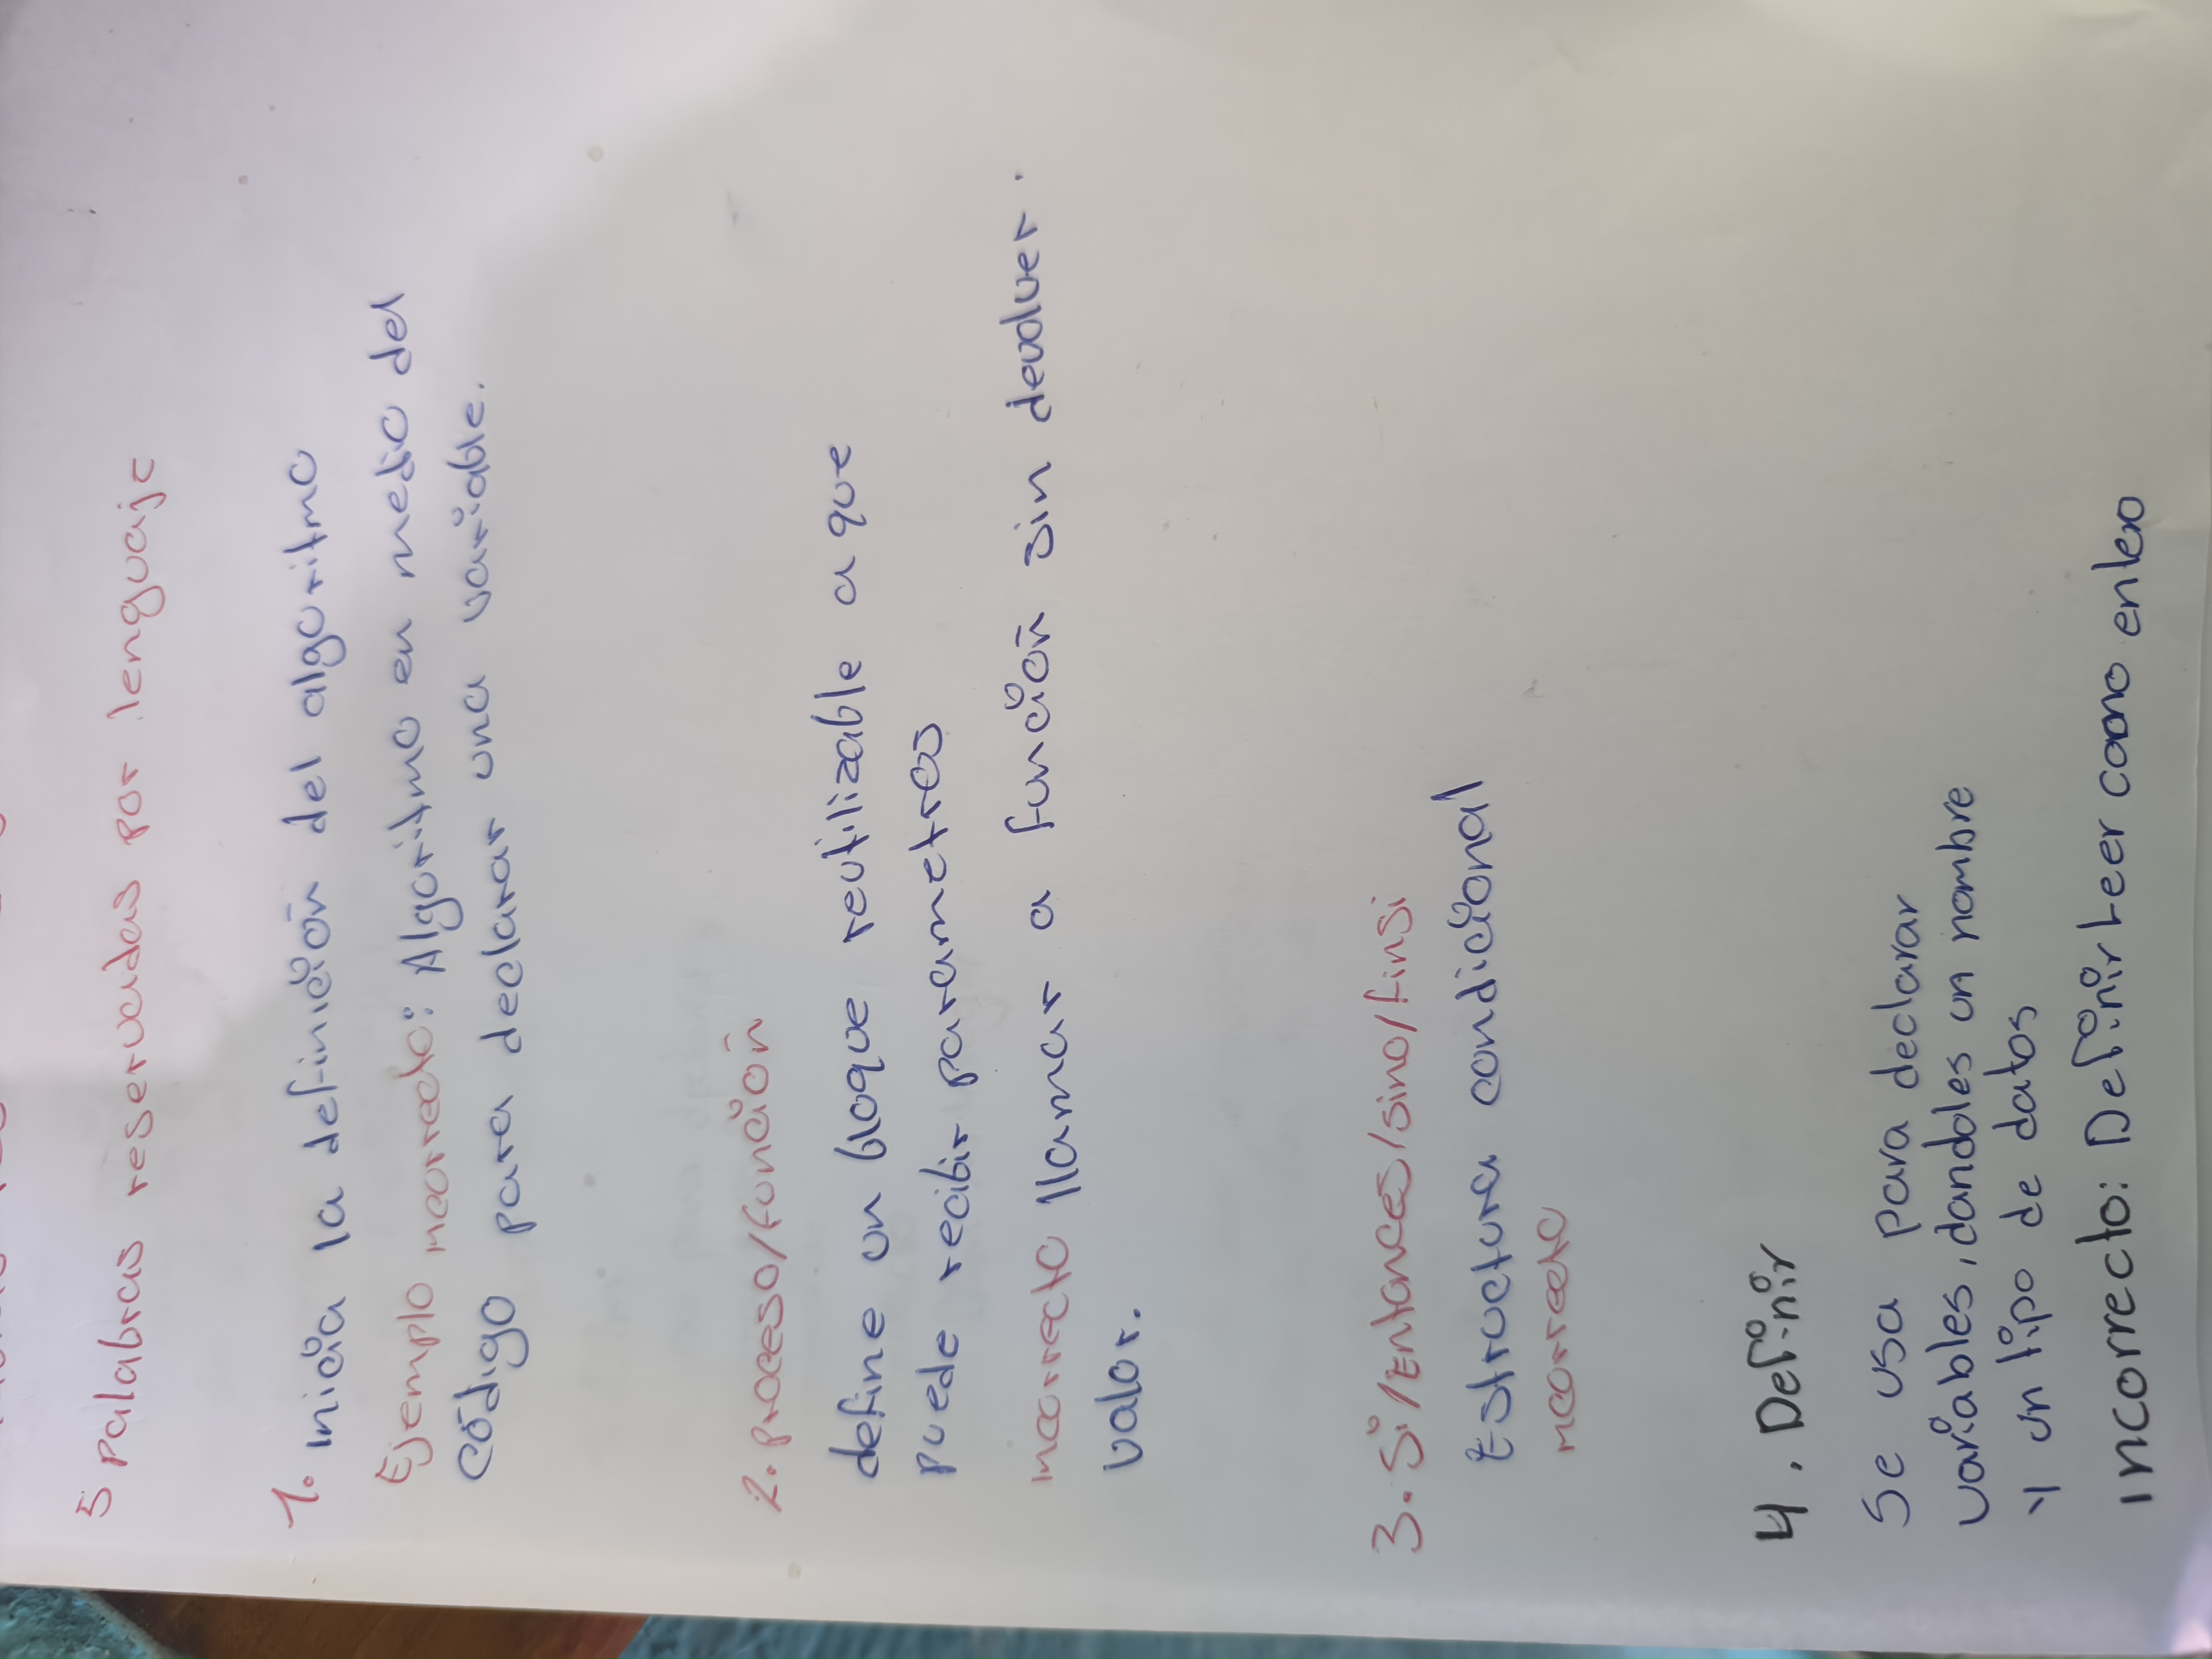 5 palabras reservadas por lenguaje
1. inicia la definición del algoritmo
Ejemplo incorrecto: Algoritmo en medio del
código para declarar una variable.
2. proceso/función
define un bloque reutilizable a que
puede recibir parametros
incorrecto llamar a función sin devolver.
valor.
3. Si/Entonces/sino/finsi
Estructura condicional
incorrecto
4. Definir
Se usa para declarar
variables, dandoles un nombre
y un tipo de datos
incorrecto: Definir Leer como entero